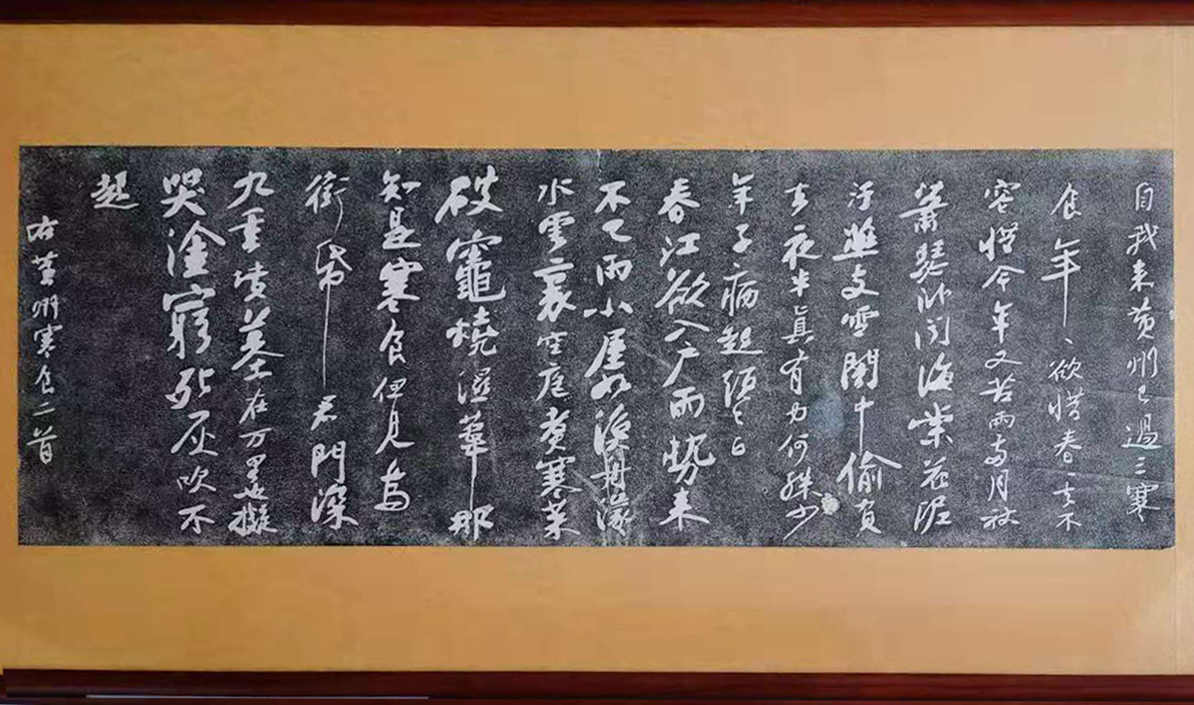 自我来黄州已過三寒
食年〻欲惜春〻去不
容惜今年又苦雨兩月秋
蕭瑟卧聞海棠花泥
汙燕支雪闇中偷負
去夜半真有力何殊少
年子病起須已白
春江欲入户雨勢来
不已雨小屋如漁舟濛〻
水雲裏空庖煮寒菜
破竈燒濕葦那
知是寒食但見烏
銜帋君門深
九重墳墓在万里也擬
哭塗窮死灰吹不
起
右黄州寒食二首